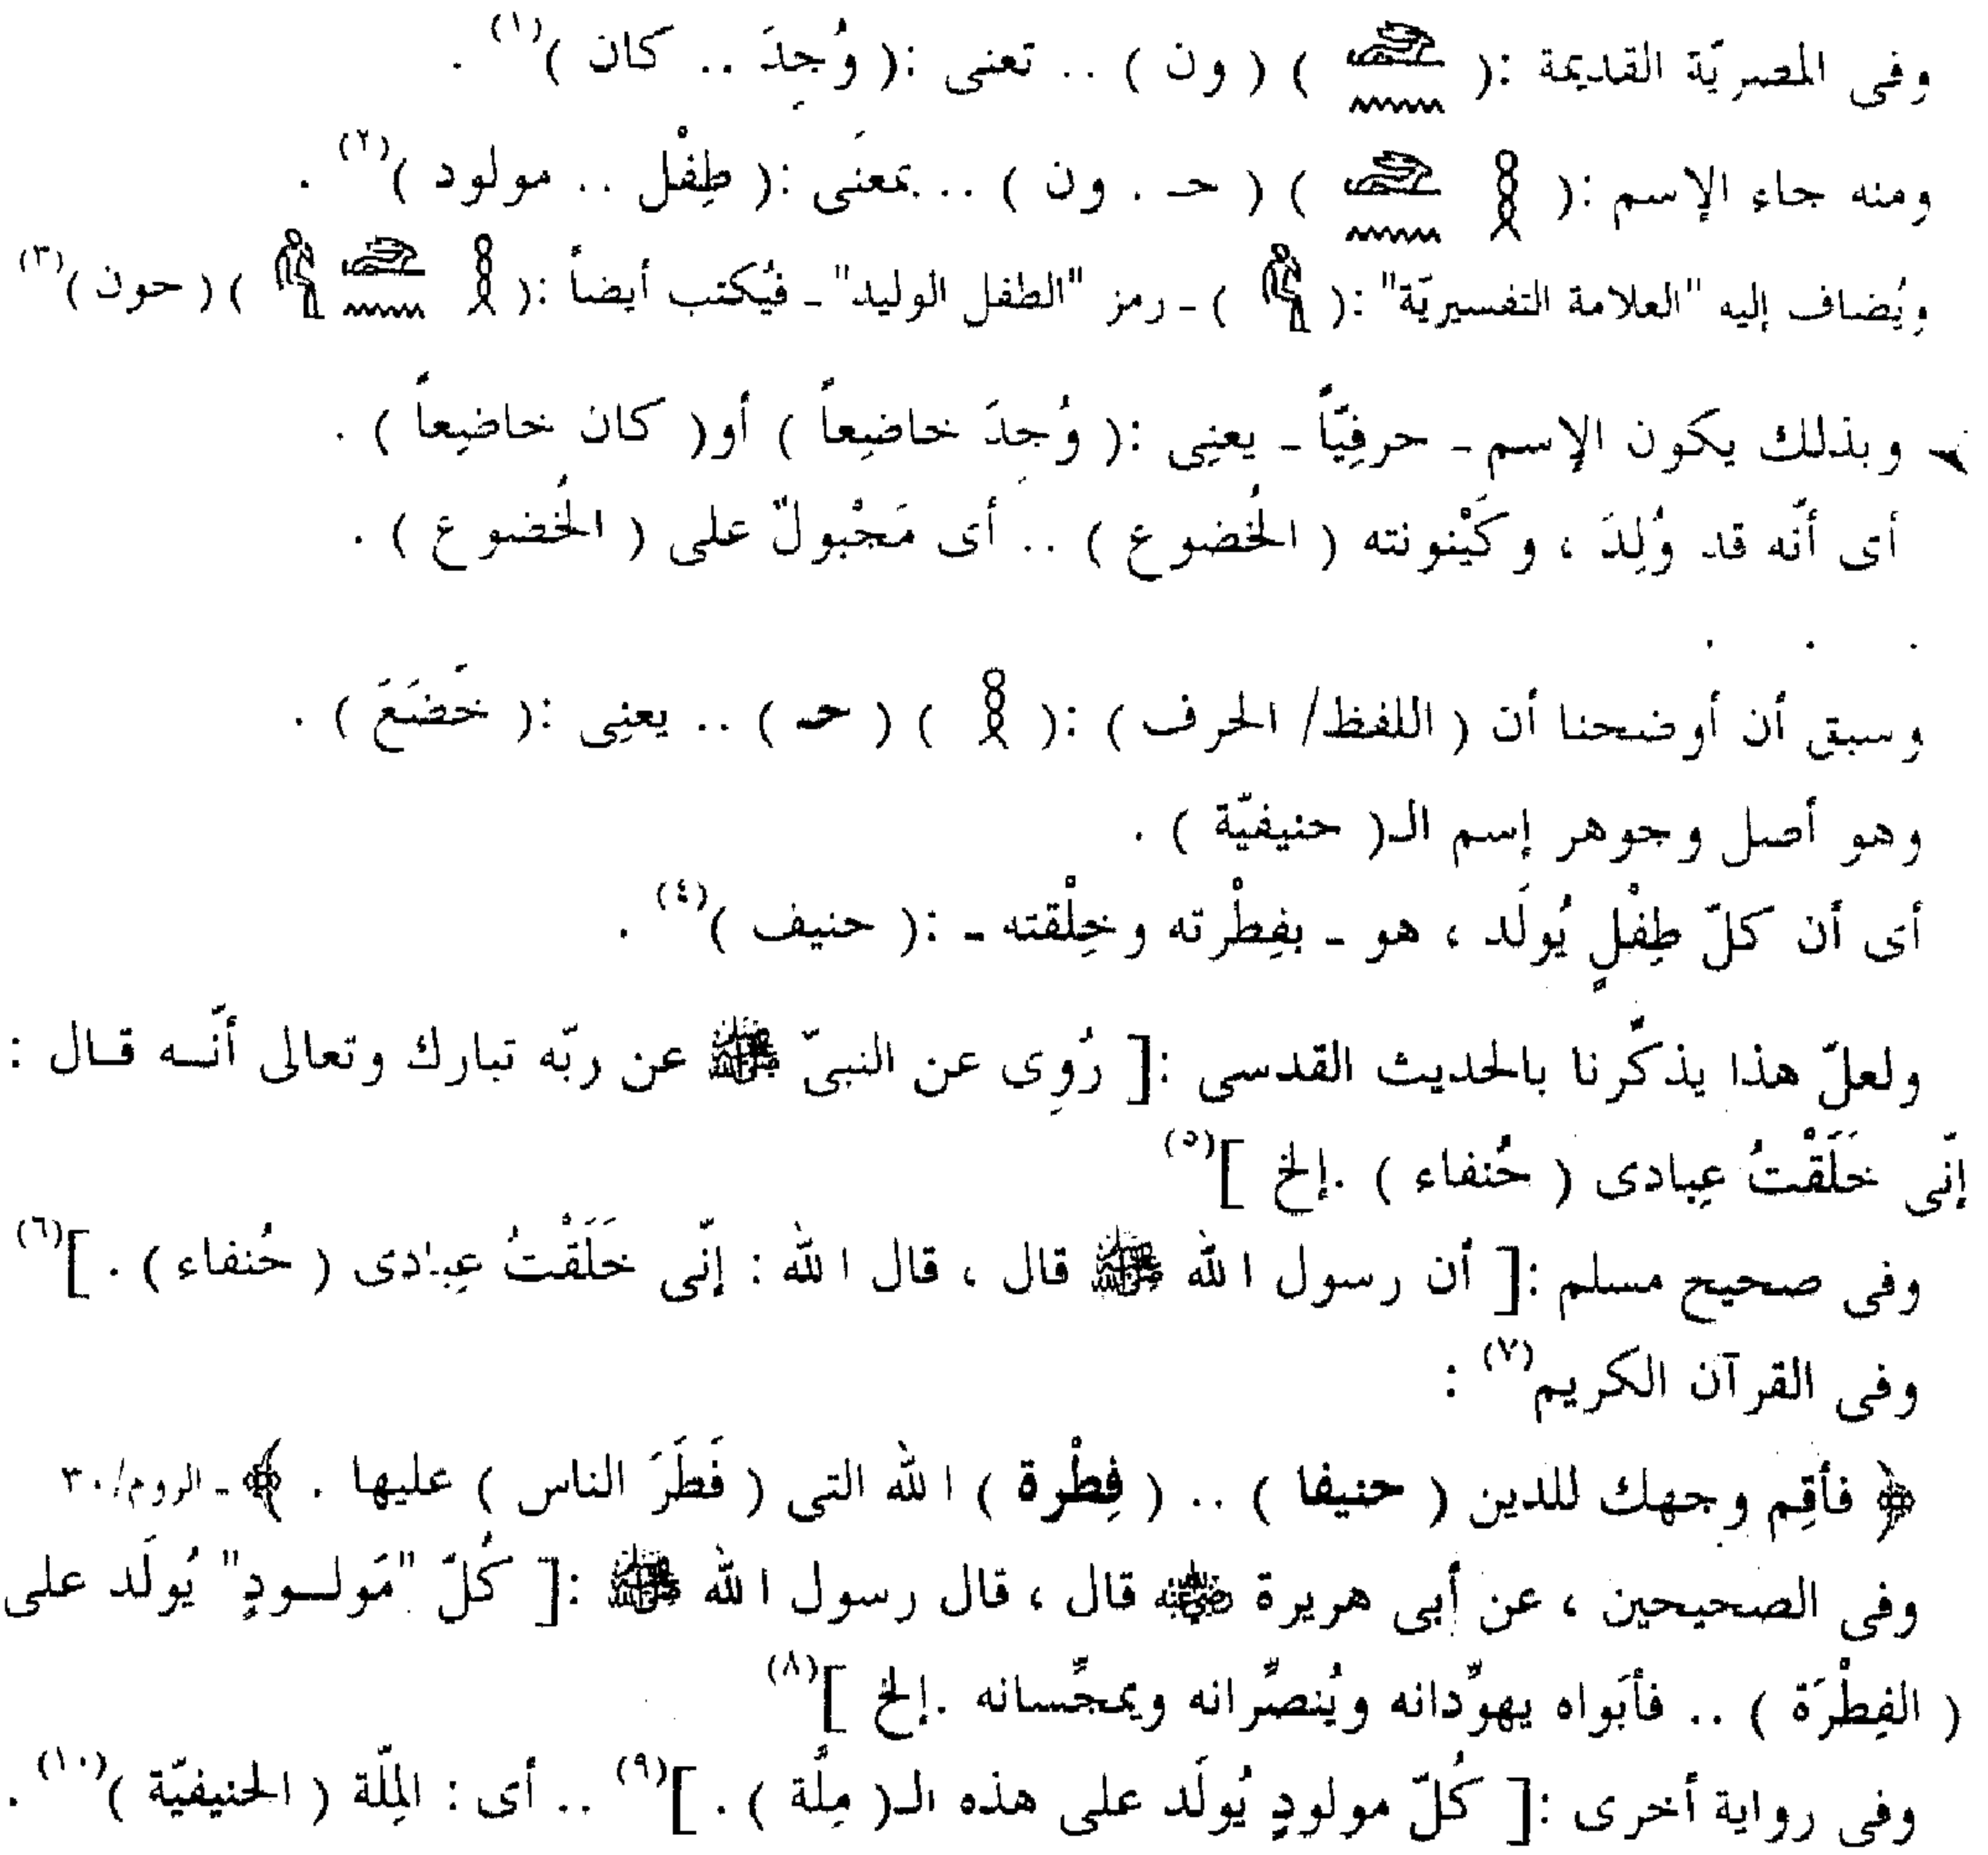 وفى المصريّة القديمة :( 𓃹𓈖 ) ( ون ) .. تعنى :( وُجِدَ .. كان )(١) .
ومنه جاء الإسم :( 𓎛𓃹𓈖 ) ( حـ . ون ) .. بمعنَى :( طِفْل .. مولود )(٢) .
ويُضاف إليه "العلامة التفسيريّة" :( 𓀔 ) ـ رمز "الطفل الوليد" ـ فيُكتب أيضاً :( 𓎛𓃹𓈖𓀔 ) ( حون )(٣)
وبذلك يكون الإسم ـ حرفِيّاً ـ يعنِى :( وُجِدَ خاضِعاً ) أو( كان خاضِعاً ) .
أى أنّه قد وُلِدَ ، وكَيْنونته ( الخُضوع ) .. أى مَجْبولٌ على ( الخُضوع ) .
. . .
وسبق أن أوضحنا أن ( اللفظ/ الحرف ) :( 𓎛 ) ( حـ ) .. يعنِى :( خَضَعَ ) .
وهو أصل وجوهر إسم الـ( حنيفيّة ) .
أى أن كلّ طِفْلٍ يُولَد ، هو ـ بفِطْرته وخِلْقته ـ :( حنيف )(٤) .
ولعلّ هذا يذكّرنا بالحديث القدسى :[ رُوِى عن النبىّ ﷺ عن ربّه تبارك وتعالى أنّـه قـال :
إنّى خَلَقْتُ عِبادى ( حُنفاء ) .إلخ ](٥)
وفى صحيح مسلم :[ أن رسول الله ﷺ قال ، قال الله : إنّى خَلَقْتُ عِبادى ( حُنفاء ) . ](٦)
وفى القرآن الكريم(٧) :
﴿ فأقِم وجهك للدين ( حنيفا ) .. ( فِطْرة ) الله التى ( فَطَرَ الناس ) عليها . ﴾ ـ الروم/٣٠
وفى الصحيحين ، عن أبى هريرة رضي الله عنه قال ، قال رسول الله ﷺ :[ كُلّ "مَولـودٍ" يُولَد على
( الفِطْرَة ) .. فأبَواه يهوِّدانه ويُنصِّرانه ويمجِّسانه .إلخ ](٨)
وفى رواية أخرى :[ كُلّ مولودٍ يُولَد على هذه الـ( مِلّة ) . ](٩) .. أى : المِلّة ( الحنيفيّة )(١٠) .